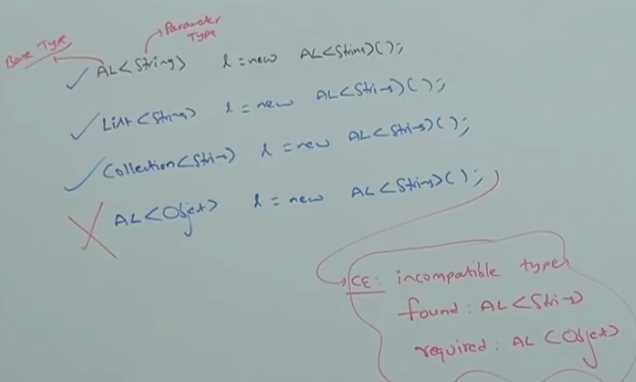 Base Type
Parameter Type
AL<String> l = new AL<String>();
List<String> l = new AL<String>();
Collection<String> l = new AL<String>();
AL<Object> l = new AL<String>();
CE: incompatible types
found: AL<String>
required: AL<Object>